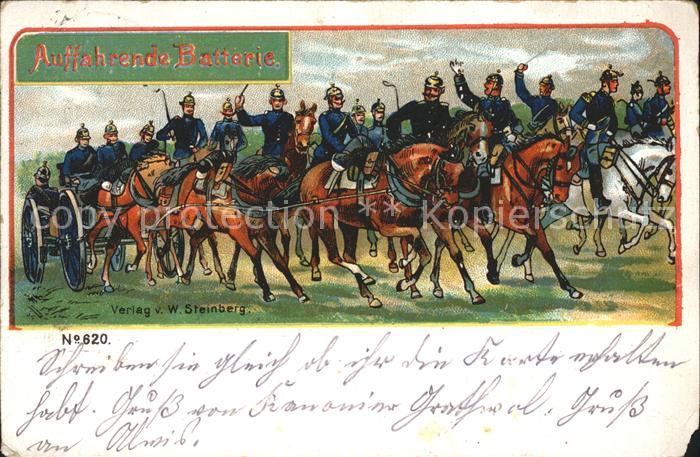 Auffahrende Batterie.
copy protection ** Kopierschutz
Verlag v. W. Steinberg.
No 620.
Schreiben sie gleich ob ihr die Karte erhalten
habt. Gruß von Kanonier Grathwol. Gruß
an Alwis.